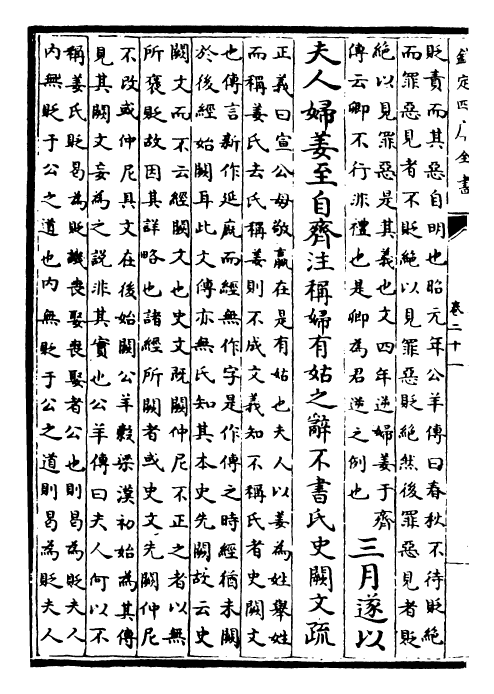 欽定四庫全書
卷二十一
貶責而其惡自明也昭元年公羊傳曰春秋不待貶絶
而罪惡見者不貶絶以見罪惡貶絶然後罪惡見者貶
絶以見罪惡是其義也文四年逆婦姜于齊
傳云卿不行非禮也是卿為君逆之例也
三月遂以
夫人婦姜至自齊注稱婦有姑之辭不書氏史闕文疏
正義曰宣公母敬嬴在是有姑也夫人以姜為姓舉姓
而稱姜氏去氏稱姜則不成文義知不稱氏者史闕文
也傳言新作延廐而經無作字是作傳之時經猶未闕
於後經始闕耳此文傳亦無氏知其本史先闕故云史
闕文而不云經闕文也史文既闕仲尼不正之者以無
所褒貶故因其詳略也諸經所闕者或史文先闕仲尼
不改或仲尼具文在後始闕公羊穀梁漢初始為其傳
見其闕文妄為之説非其實也公羊傳曰夫人何以不
稱姜氏貶曷為貶譏喪娶喪娶者公也則曷為貶夫人
内無貶于公之道也内無貶于公之道則曷為貶夫人